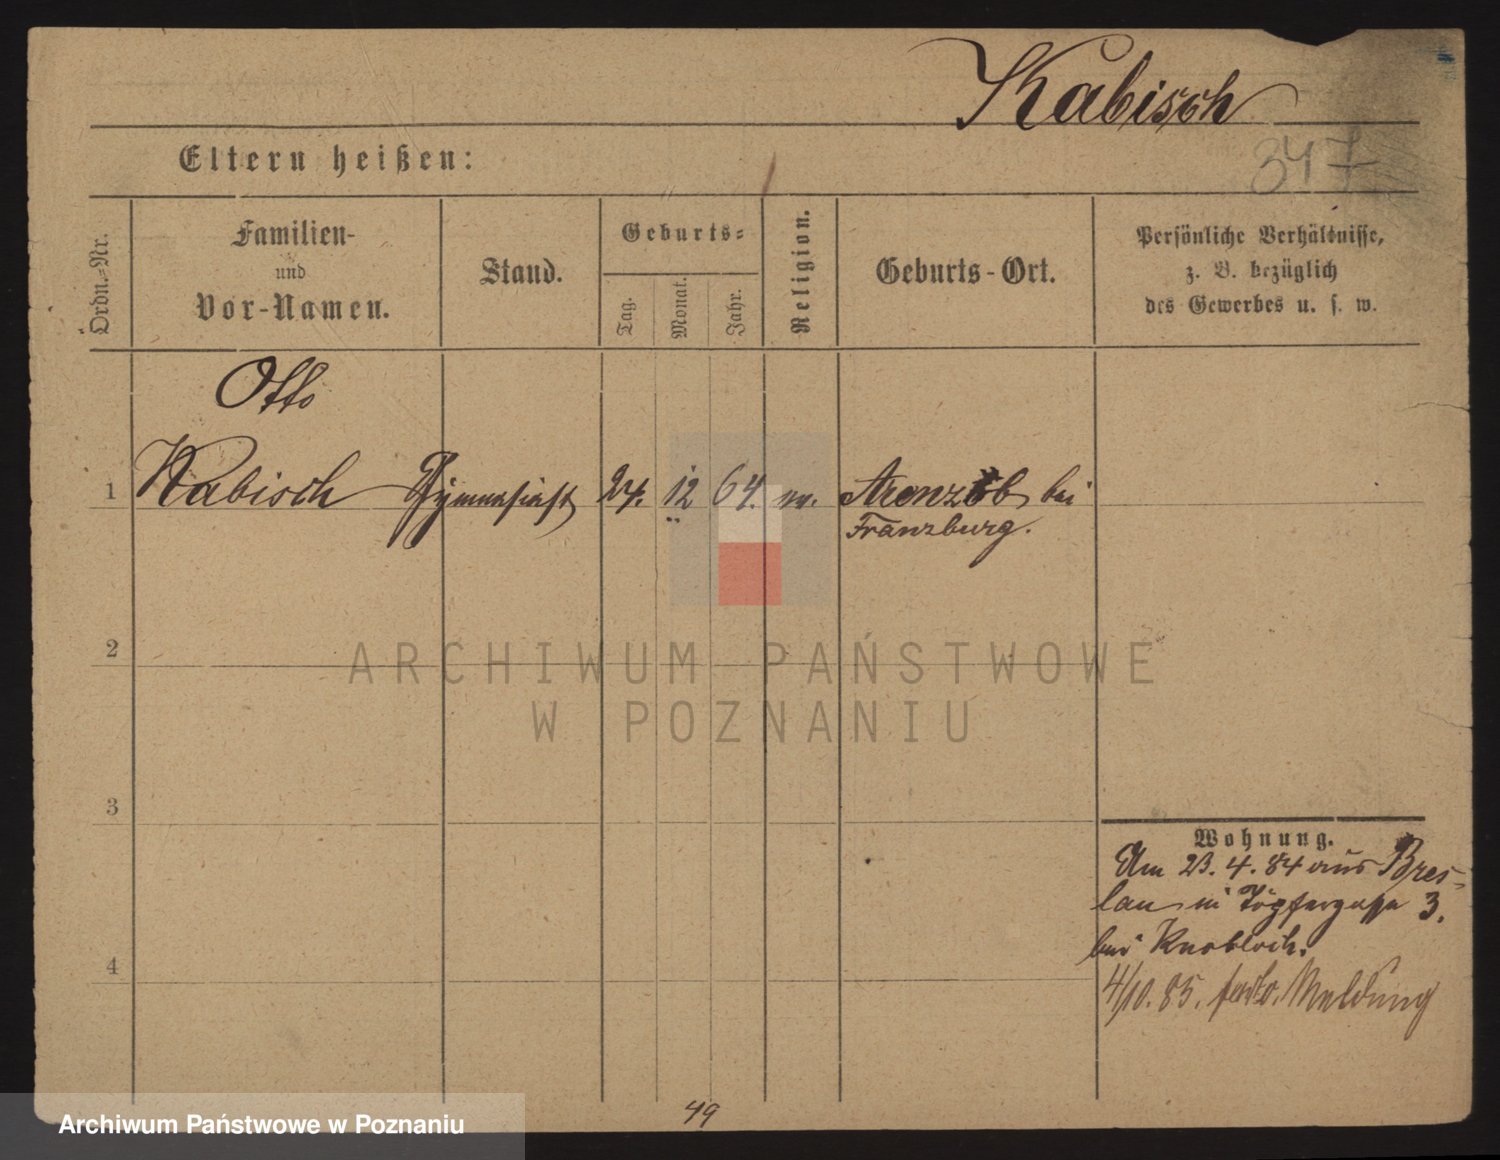 Kabisch
347
Eltern heißen:
Ordn.=Nr.
Familien-
und
Vor-Namen.
Stand.
Geburts=
Tag.
Monat.
Jahr.
Religion.
Geburts-Ort.
Persönliche Verhältnisse,
z. B. bezüglich
des Gewerbes u. s. w.
Otto
1 Kabisch Gymnasiast 24. 12 64. ev. bei
Franzburg.
2
ARCHIWUM PAŃSTWOWE
W POZNANIU
3
Wohnung.
Am 23.4.84 aus Bres=
lau in Töpfergasse 3.
bei Knobloch.
4
4/10. 85. Meldung
49
Archiwum Państwowe w Poznaniu